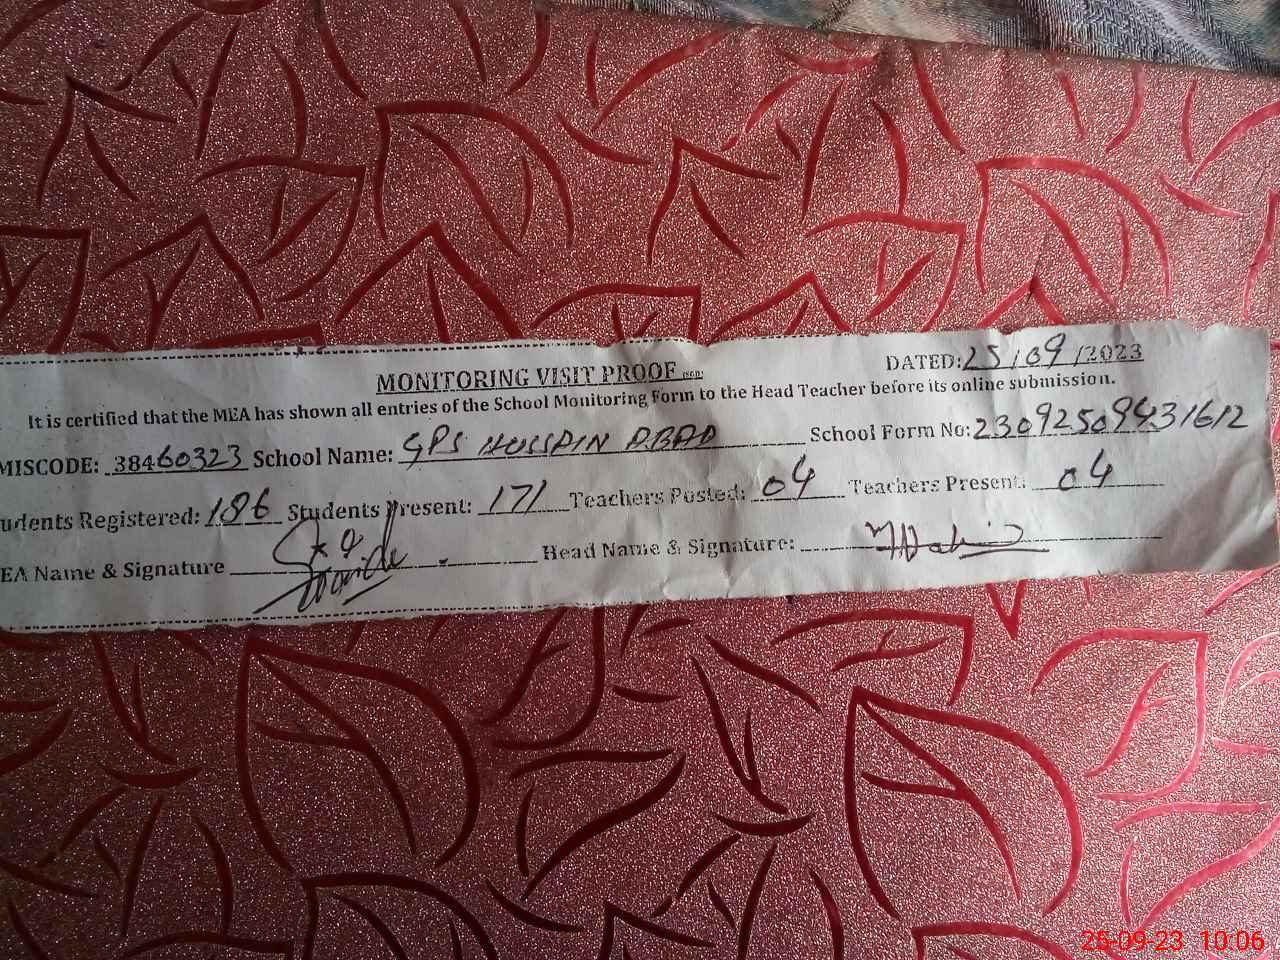 MONITORING VISIT PROOF DATED: 25/09/2023
It is certified that the MEA has shown all entries of the School Monitoring Form to the Head Teacher before its online submission.
MISCODE: 38460323 School Name: GPS HUSSAIN ABAD School Form No: 23092509431612
udents Registered: 186 Students Present: 171 Teachers Posted: 04 Teachers Present: 04
EA Name & Signature Head Name & Signature:
25-09-23 10:06